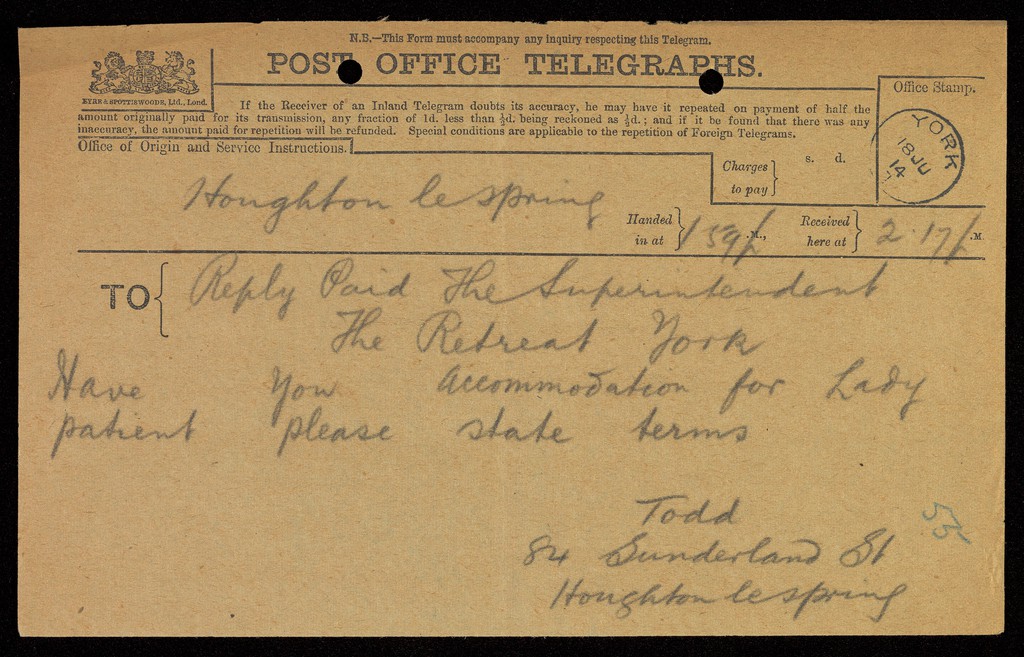 N.B.—This Form must accompany any inquiry respecting this Telegram.
POST OFFICE TELEGRAPHS.
EYRE & SPOTTISWOODE, Ltd., Lond.
If the Receiver of an Inland Telegram doubts its accuracy, he may have it repeated on payment of half the
amount originally paid for its transmission, any fraction of 1d. less than ½d. being reckoned as ½d.; and if it be found that there was any
inaccuracy, the amount paid for repetition will be refunded. Special conditions are applicable to the repetition of Foreign Telegrams.
Office Stamp.
YORK
18 JU
14
Office of Origin and Service Instructions.
Charges
to pay
s. d.
Houghton le spring
Handed
in at
1 59 .M.,
Received
here at
2.17 .M.
TO
Reply Paid The Superintendent
The Retreat York
Have You accommodation for Lady
patient please state terms
Todd
84 Sunderland St
Houghton le spring